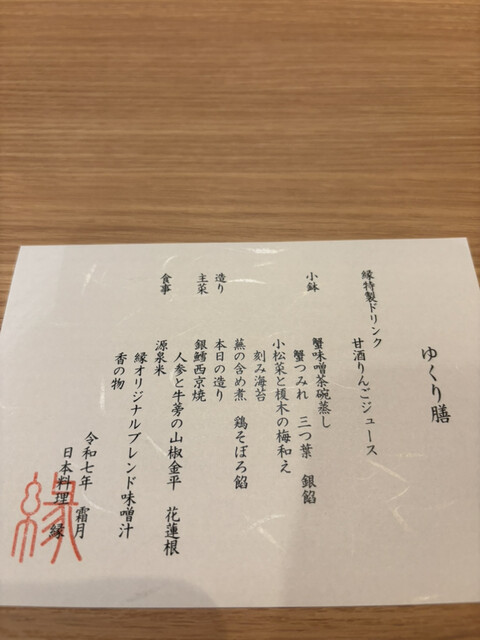 ゆくり膳
縁特製ドリンク
甘酒りんごジュース
小鉢
蟹味噌茶碗蒸し
蟹つみれ 三つ葉 銀餡
小松菜と榎木の梅和え
刻み海苔
蕪の含め煮 鶏そぼろ餡
造り
本日の造り
主菜
銀鱈西京焼
人参と牛蒡の山椒金平 花蓮根
食事
源泉米
縁オリジナルブレンド味噌汁
香の物
令和七年 霜月
日本料理 縁
縁